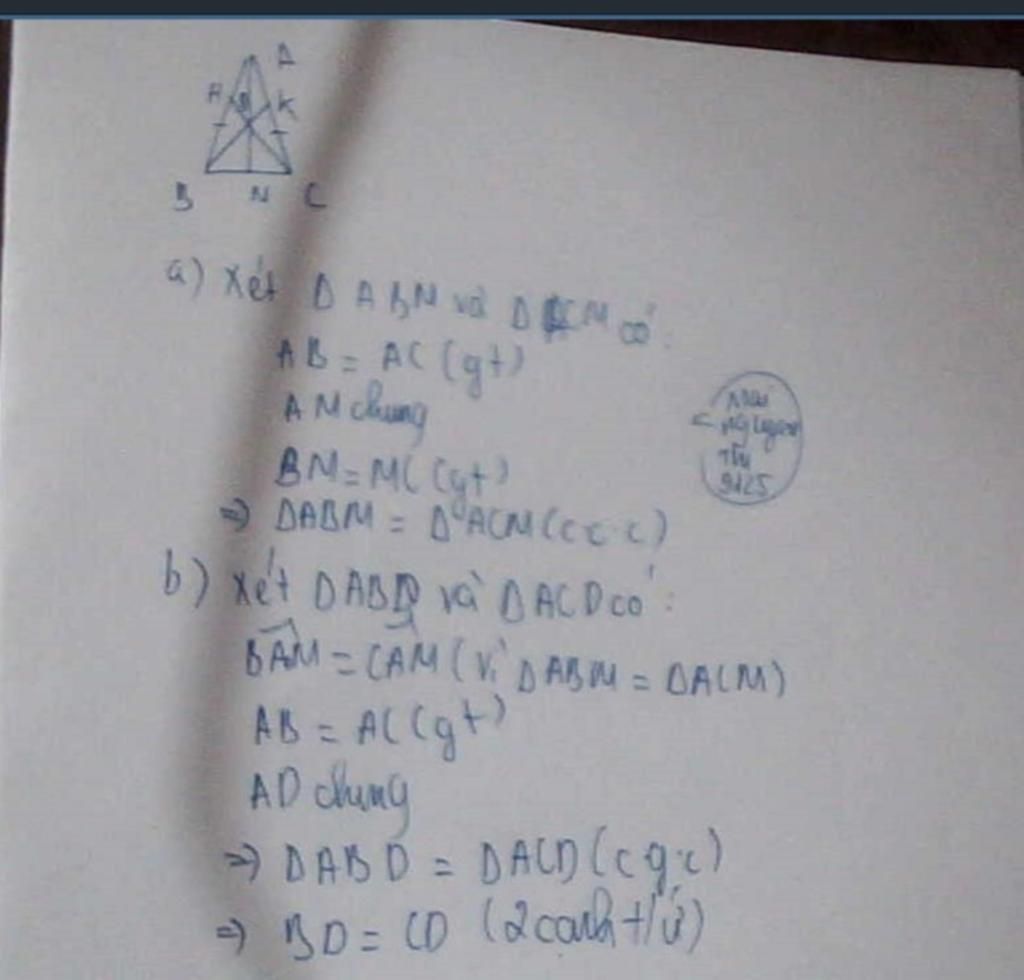 A
H D K
B N C
a) Xét Δ ABM và Δ ACM có:
AB = AC (gt)
AM chung
BM = MC (gt)
⇒ ΔABM = ΔACM (c c c)
Mai
Nguyen
9125
b) Xét ΔABD và ΔACD có:
BAM = CAM (vì ΔABM = ΔACM)
AB = AC (gt)
AD chung
⇒ ΔABD = ΔACD (c g c)
⇒ BD = CD (2 cạnh t/ứ)